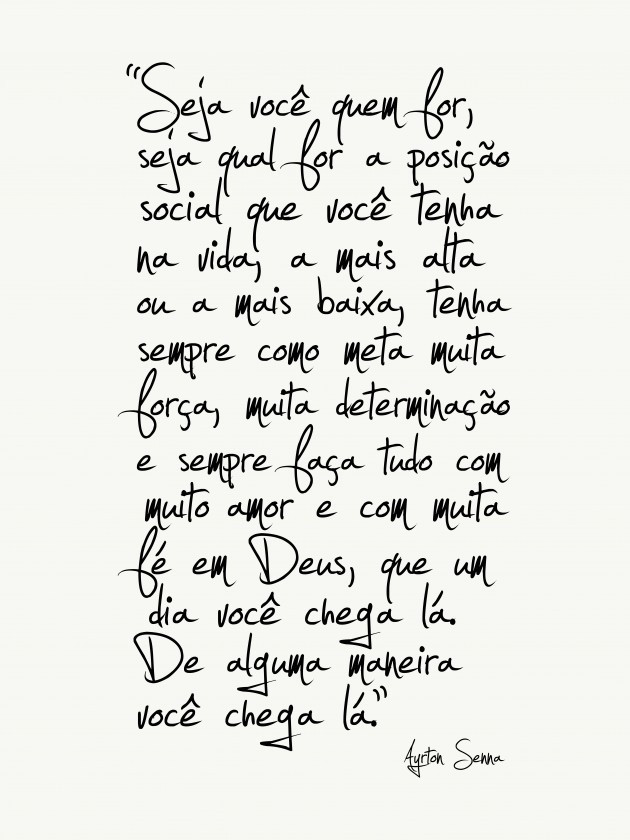 “Seja você quem for,
seja qual for a posição
social que você tenha
na vida, a mais alta
ou a mais baixa, tenha
sempre como meta muita
força, muita determinação
e sempre faça tudo com
muito amor e com muita
fé em Deus, que um
dia você chega lá.
De alguma maneira
você chega lá.”
Ayrton Senna